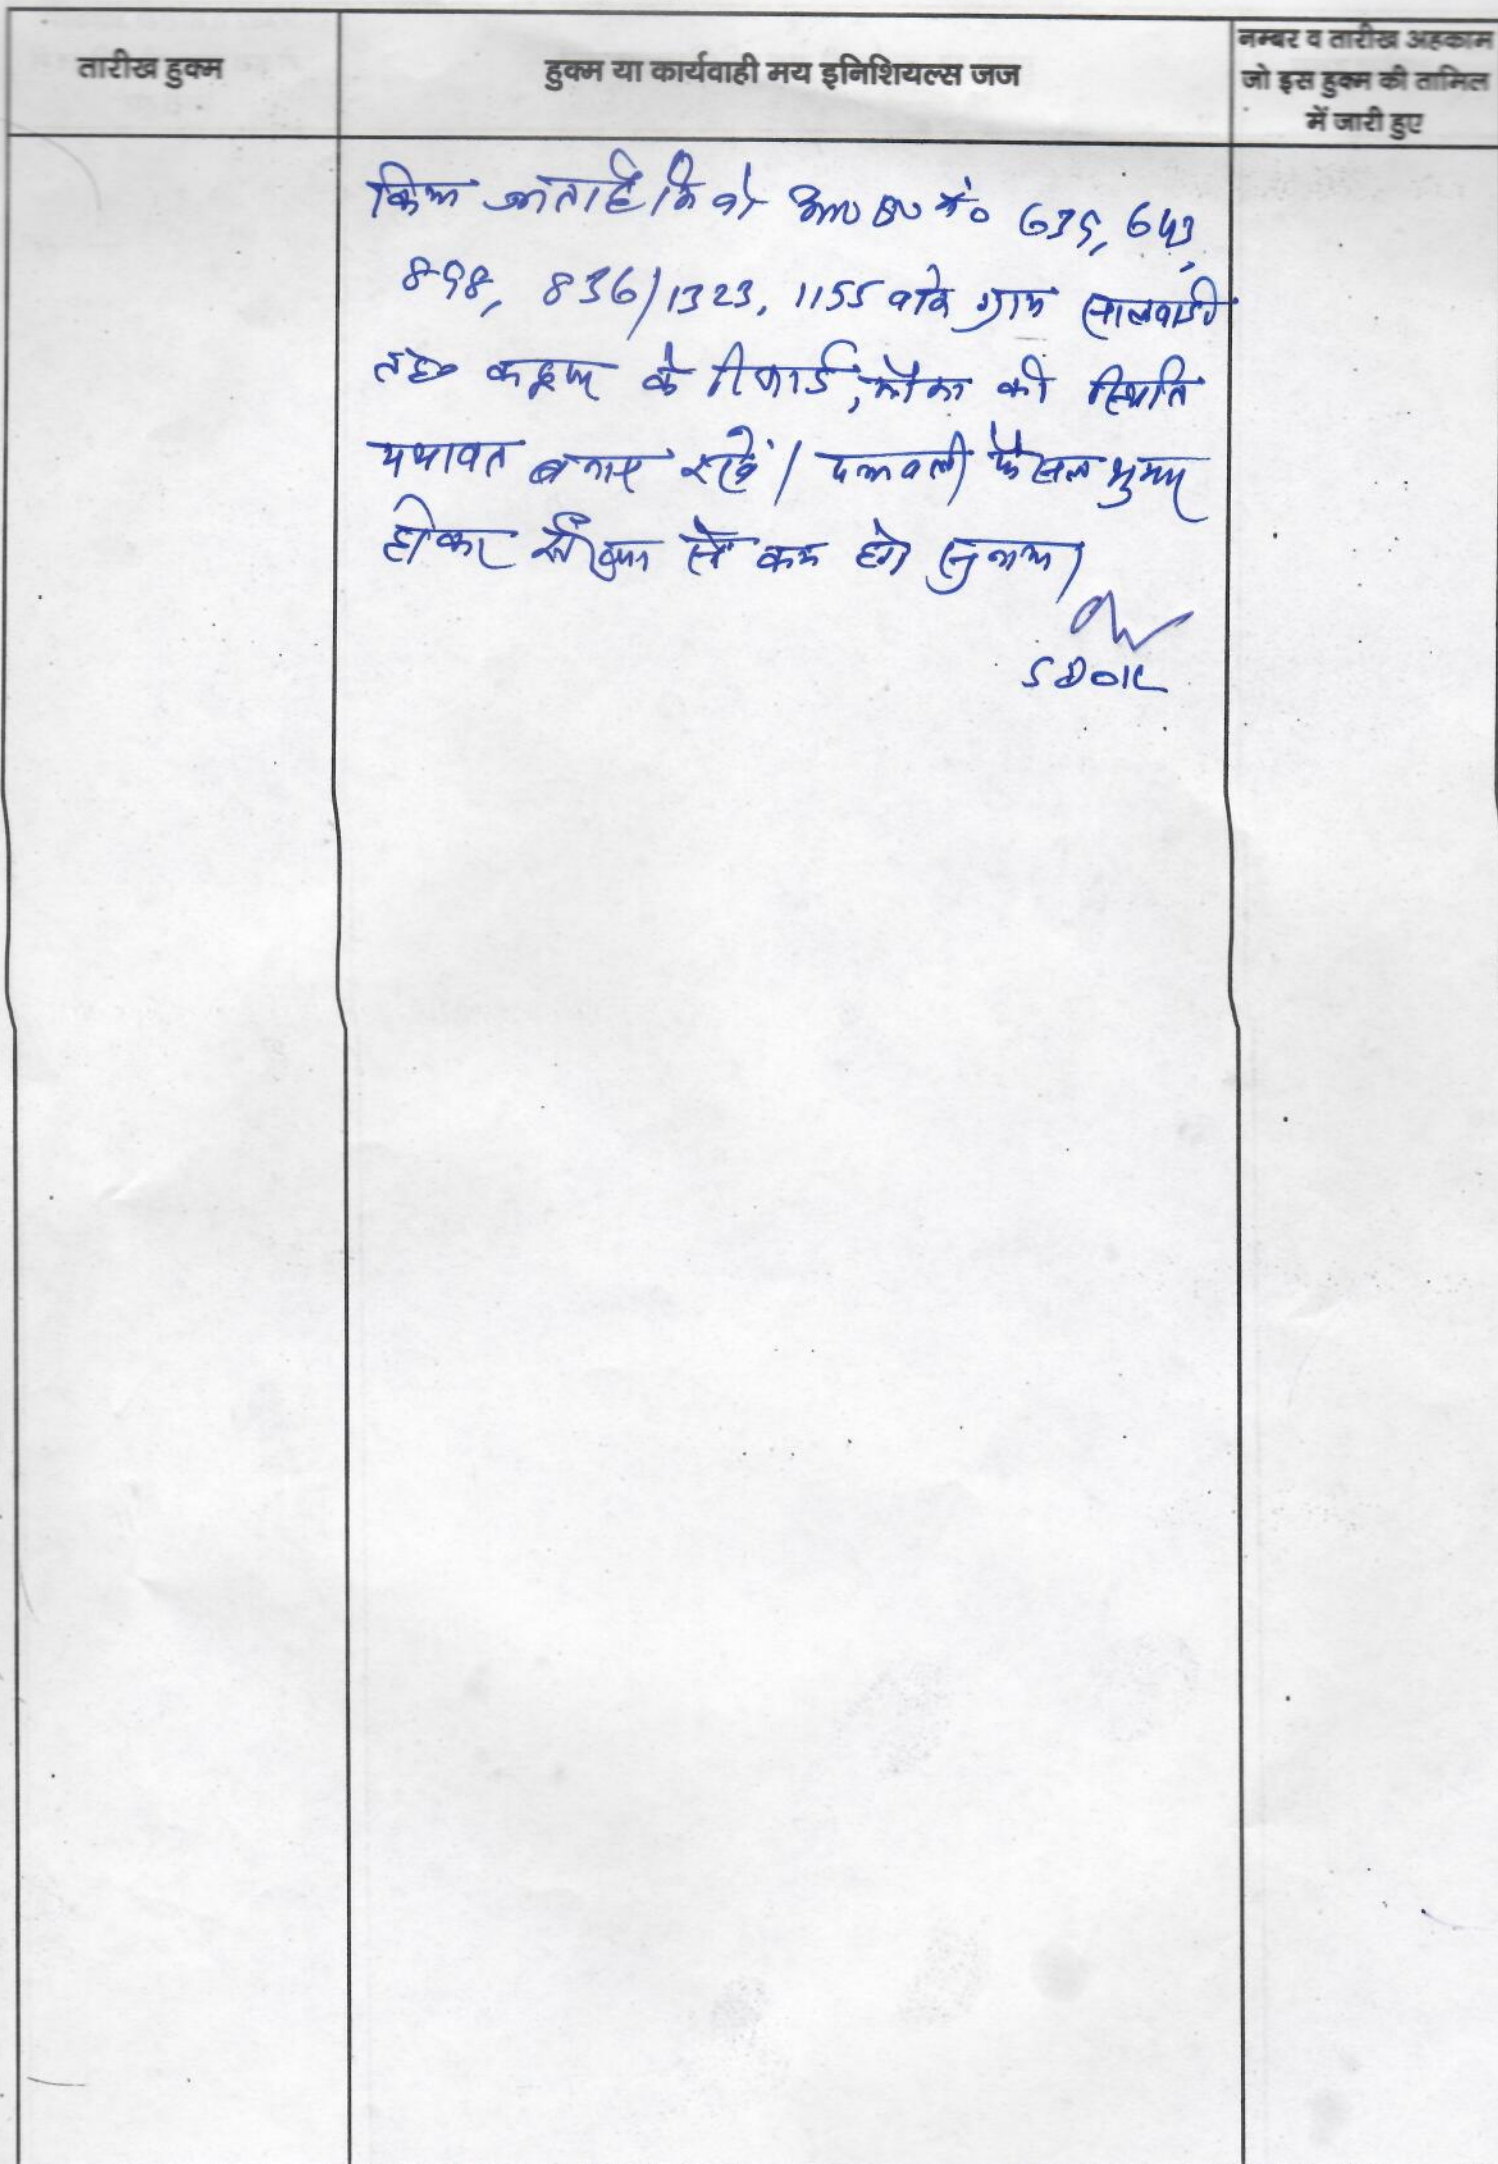 तारीख हुक्म
हुक्म या कार्यवाही मय इनिशियल्स जज
नम्बर व तारीख अहकाम
जो इस हुक्म की तामिल
में जारी हुए
किया जाता है कि वो नं० 635, 643,
898, 836/1323, 1155 वाके ग्राम सालवाडी
तह० के रिकार्ड, मौका की स्थिति
यथावत बनाए रखें। पत्रावली फैसल शुमार
होकर से कम हो सुनाया।